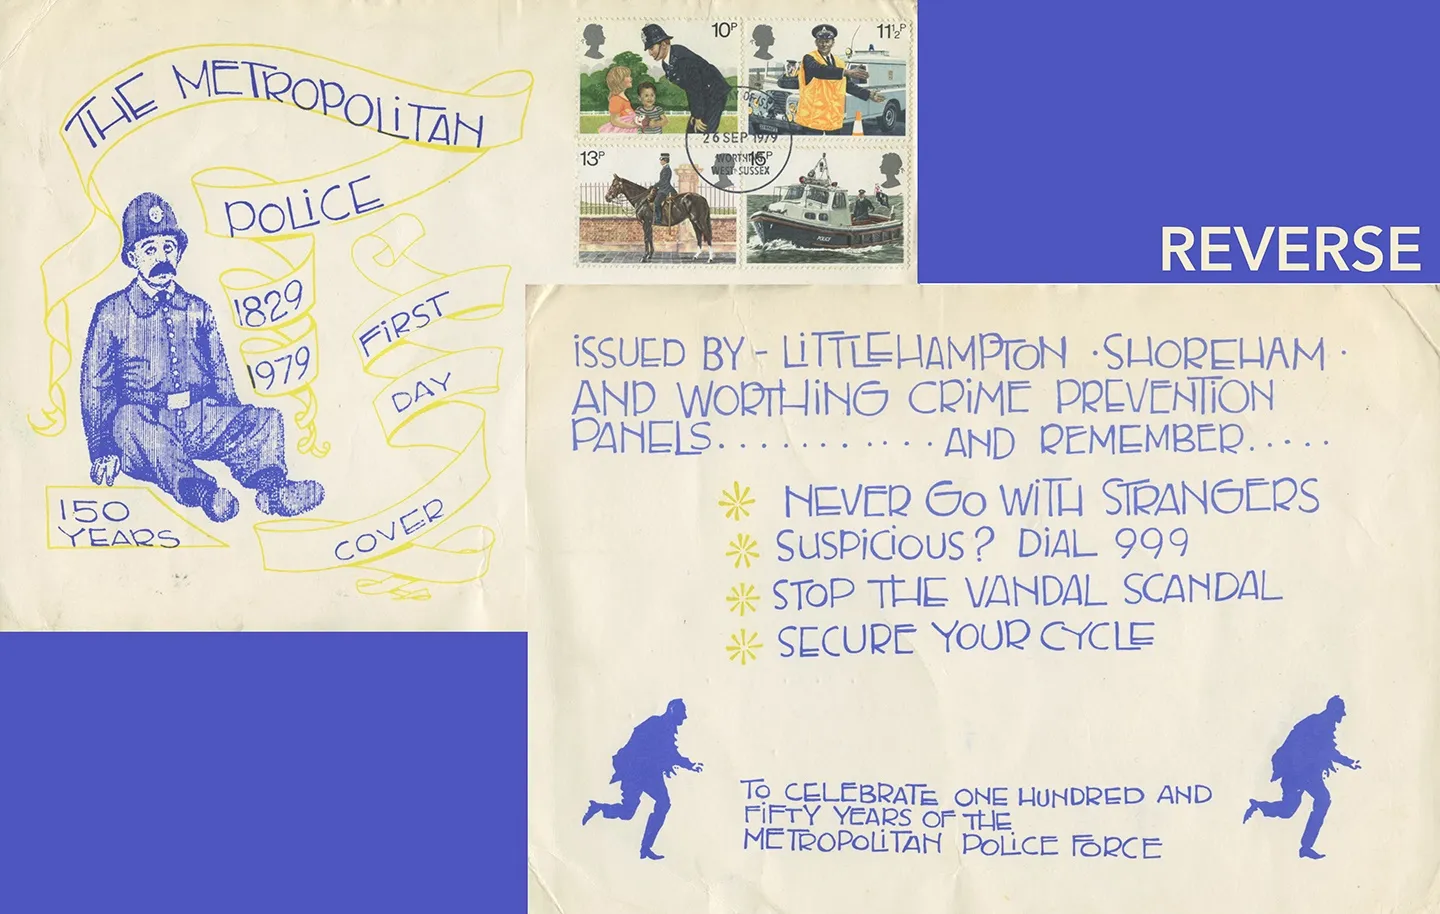 THE METROPOLITAN
POLICE
1829
1979
FIRST
DAY
COVER
150
YEARS
10P
11½P
13P
15P
OF IS
26 SEP 1979
WORTHING
WEST SUSSEX
POLICE
REVERSE
ISSUED BY - LITTLEHAMPTON · SHOREHAM ·
AND WORTHING CRIME PREVENTION
PANELS........... AND REMEMBER.....
NEVER GO WITH STRANGERS
SUSPICIOUS? DIAL 999
STOP THE VANDAL SCANDAL
SECURE YOUR CYCLE
TO CELEBRATE ONE HUNDRED AND
FIFTY YEARS OF THE
METROPOLITAN POLICE FORCE